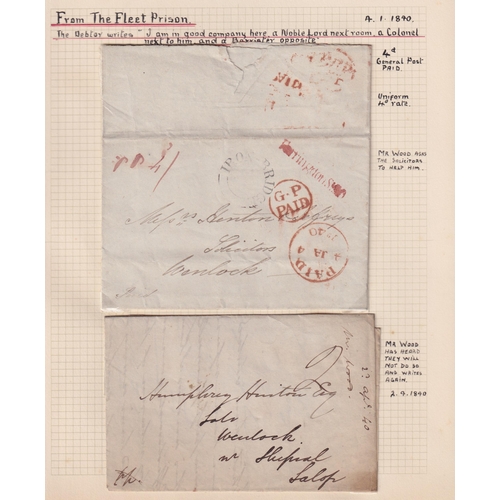 From The Fleet Prison.
4.1.1840.
The Debtor writes "I am in good company here, a Noble Lord next room, a Colonel
next to him, and a Barrister opposite"
4d
General Post
PAID.
Uniform
4d rate.
Mr Wood asks
the solicitors
to help him.
G.P
PAID
PAID
4 JA 4
1840
Messrs Hinton
Solicitors
Wenlock
Paid
Mr Wood
has heard
they will
not do so
and writes
again.
2.4.1840
2
Humphrey Hinton Esq
Solr
Wenlock
nr Shifnal
Salop